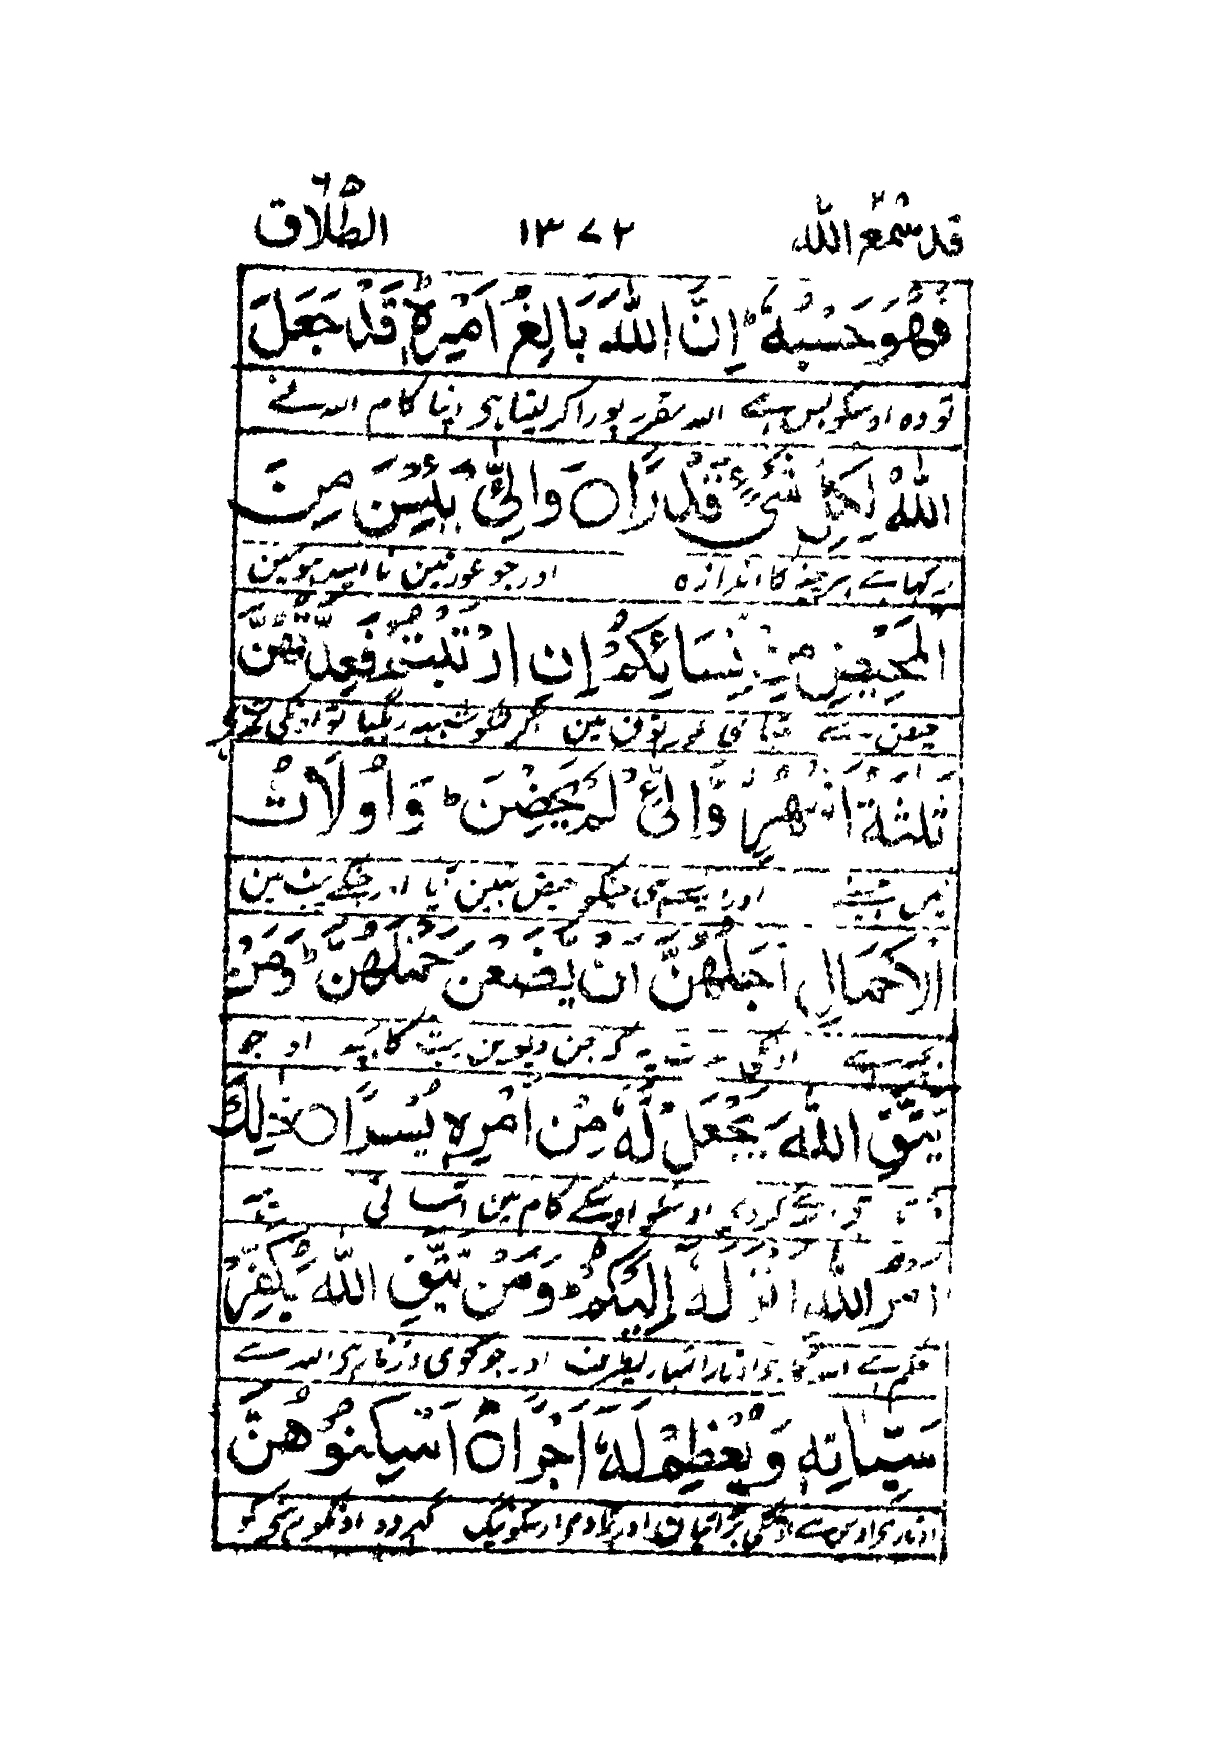 قد سمع الله ٢٨ ١٣٧٢ الطلاق ٦٥
فَهُوَ حَسْبُهٗ ؕ اِنَّ اللّٰهَ بَالِغُ اَمْرِهٖ ؕ قَدْ جَعَلَ
تو وہ اوسکو بس ہے اللہ مقرر پورا کر لیتا ہی اپنا کام اللہ نے
اللّٰهُ لِكُلِّ شَىْءٍ قَدْرًا ○ وَالّٰٓـِٔىْ يَئِسْنَ مِنَ
رکھا ہے ہر چیز کا اندازہ اور جو عورتین نا امید ہوئین
الْمَحِيْضِ مِنْ نِّسَآئِكُمْ اِنِ ارْتَبْتُمْ فَعِدَّتُهُنَّ
حیض سے تمہاری عورتون مین اگر تمکو شبہہ رہگیا تو اونکی عدت
ثَلٰثَةُ اَشْهُرٍ وَّالّٰٓـِٔىْ لَمْ يَحِضْنَ ؕ وَاُولَاتُ
اور ایسی ہی جنکو حیض نہین آیا اور جنکے پیٹ مین
الْاَحْمَالِ اَجَلُهُنَّ اَنْ يَّضَعْنَ حَمْلَهُنَّ ؕ وَمَنْ
بچہ ہے اونکی عدت یہ کہ جن دیوین پیٹ کا بچہ اور جو
يَّتَّقِ اللّٰهَ يَجْعَلْ لَّهٗ مِنْ اَمْرِهٖ يُسْرًا ○ ذٰلِكَ
کردی اوسکو اوسکے کام مین آسانی یہ
اَمْرُ اللّٰهِ اَنْزَلَهٗٓ اِلَيْكُمْ ؕ وَمَنْ يَّتَّقِ اللّٰهَ يُكَفِّرْ
حکم ہے اللہ کا جو اوتارا تمہاری طرف اور جو کوئی ڈرتا رہی اللہ سے
سَيِّاٰتِهٖ وَيُعْظِمْ لَهٗٓ اَجْرًا ○ اَسْكِنُوْهُنَّ
اوتاری اوس سے اوسکی برائیان اور بڑا دی اوسکو نیگ گھر دو اونکو